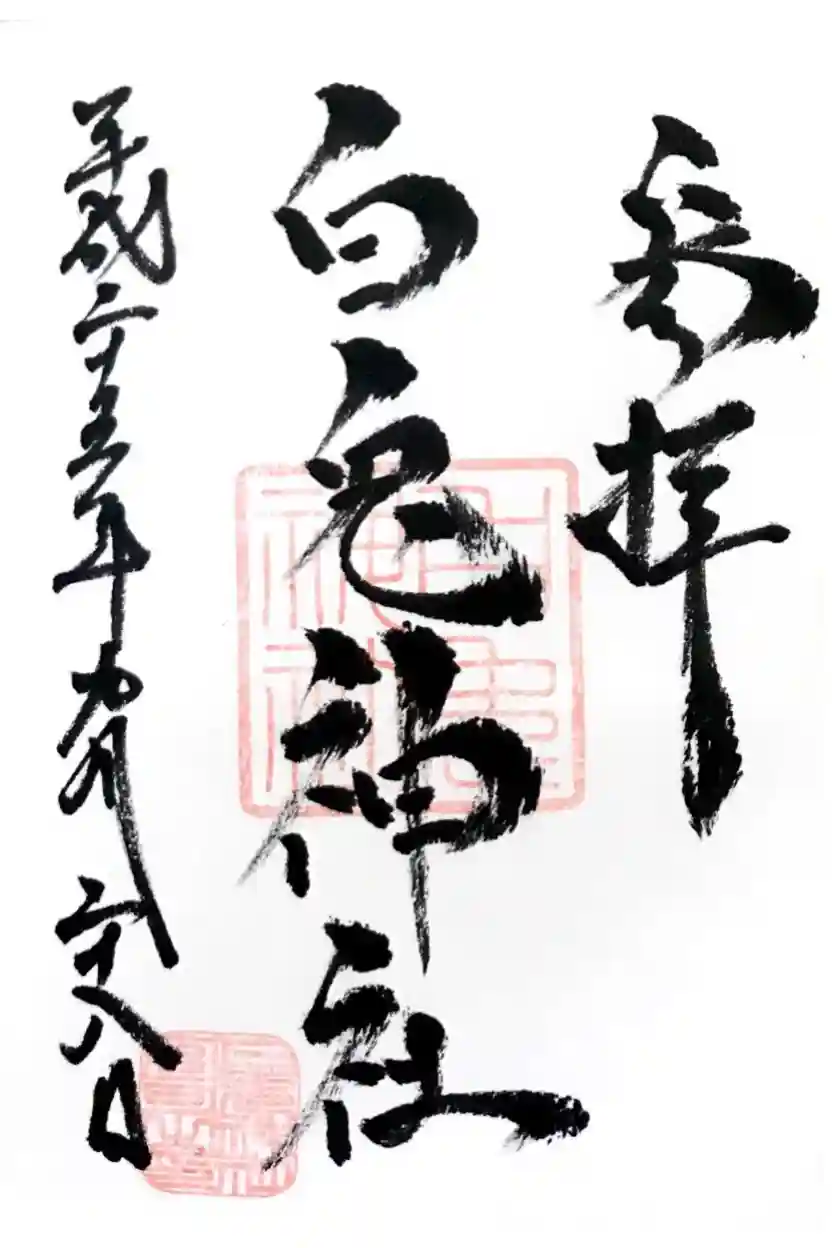 参拝
白兎神社
平成二十五年九月二十八日